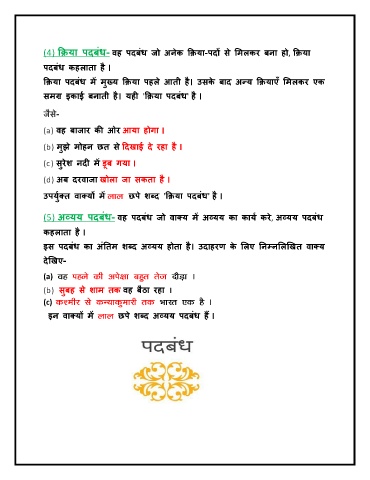 (4) क्रिया पदबंध- वह पदबंध जो अनेक क्रिया-पदों से मिलकर बना हो, क्रिया
पदबंध कहलाता है।
क्रिया पदबंध में मुख्य क्रिया पहले आती है। उसके बाद अन्य क्रियाएँ मिलकर एक
समग्र इकाई बनाती है। यही 'क्रिया पदबंध' है।
जैसे-
(a) वह बाजार की ओर आया होगा।
(b) मुझे मोहन छत से दिखाई दे रहा है।
(c) सुरेश नदी में डूब गया।
(d) अब दरवाजा खोला जा सकता है।
उपर्युक्त वाक्यों में लाल छपे शब्द 'क्रिया पदबंध' है।
(5) अव्यय पदबंध- वह पदबंध जो वाक्य में अव्यय का कार्य करे, अव्यय पदबंध
कहलाता है।
इस पदबंध का अंतिम शब्द अव्यय होता है। उदाहरण के लिए निम्नलिखित वाक्य
देखिए-
(a) वह पहले की अपेक्षा बहुत तेज दौड़ा ।
(b) सुबह से शाम तक वह बैठा रहा ।
(c) कश्मीर से कन्याकुमारी तक भारत एक है ।
इन वाक्यों में लाल छपे शब्द अव्यय पदबंध हैं।
पदबंध